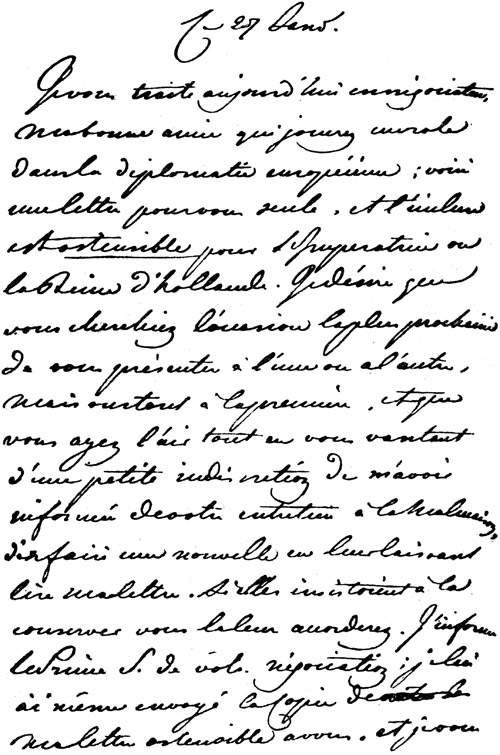 Ce 27 Janv.
Je vous traite aujourd'hui en négociateur,
ma bonne amie qui jouerez un role
dans la diplomatie européenne ; voici
une lettre pour vous seule. et l'incluse
est ostensible pour l'Imperatrice ou
la Reine d'hollande. Je désire que
vous cherchiez l'occasion la plus prochaine
de vous présenter à l'une ou a l'autre,
mais surtout à la premiere, et que
vous ayez l'air tout en vous vantant
d'une petite indiscretion de m'avoir
informé de votre entretien à la Malmaison,
d'en faire une nouvelle en leur laissant
lire ma lettre. Si elles insistoient à la
conserver vous la leur accorderez. J'informe
le Prince S. de votr. négociation ; je lui
ai même envoyé la Copie de
ma lettre ostensible a vous. et je vous